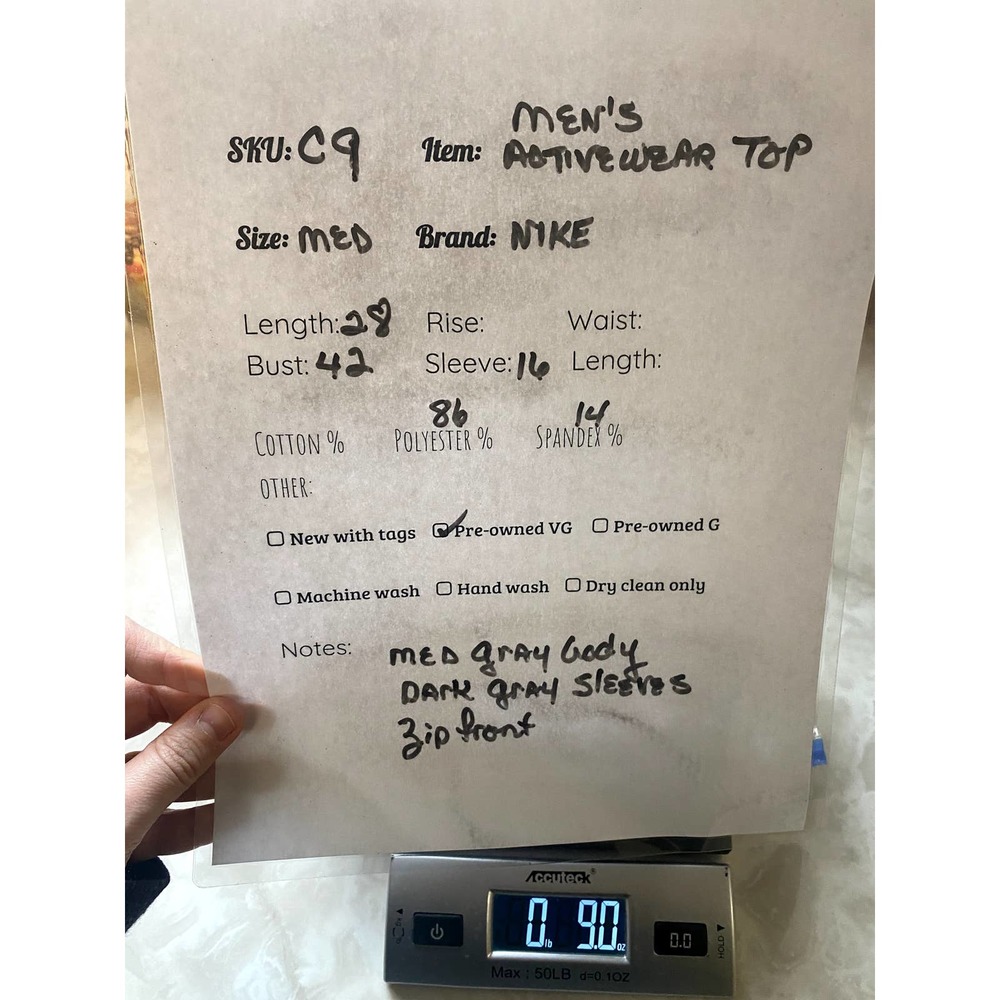 MEN'S
SKU: C9 Item: ACTIVEWEAR TOP
Size: MED Brand: NIKE
Length: 28 Rise: Waist:
Bust: 42 Sleeve: 16 Length:
86 14
COTTON % POLYESTER % SPANDEX %
OTHER:
New with tags Pre-owned VG Pre-owned G
Machine wash Hand wash Dry clean only
Notes: MED GRAY body
DARK GRAY SLEEVES
Zip front
Accuteck
0 lb 9.0 oz
0.0
HOLD
Max : 50LB d=0.1OZ